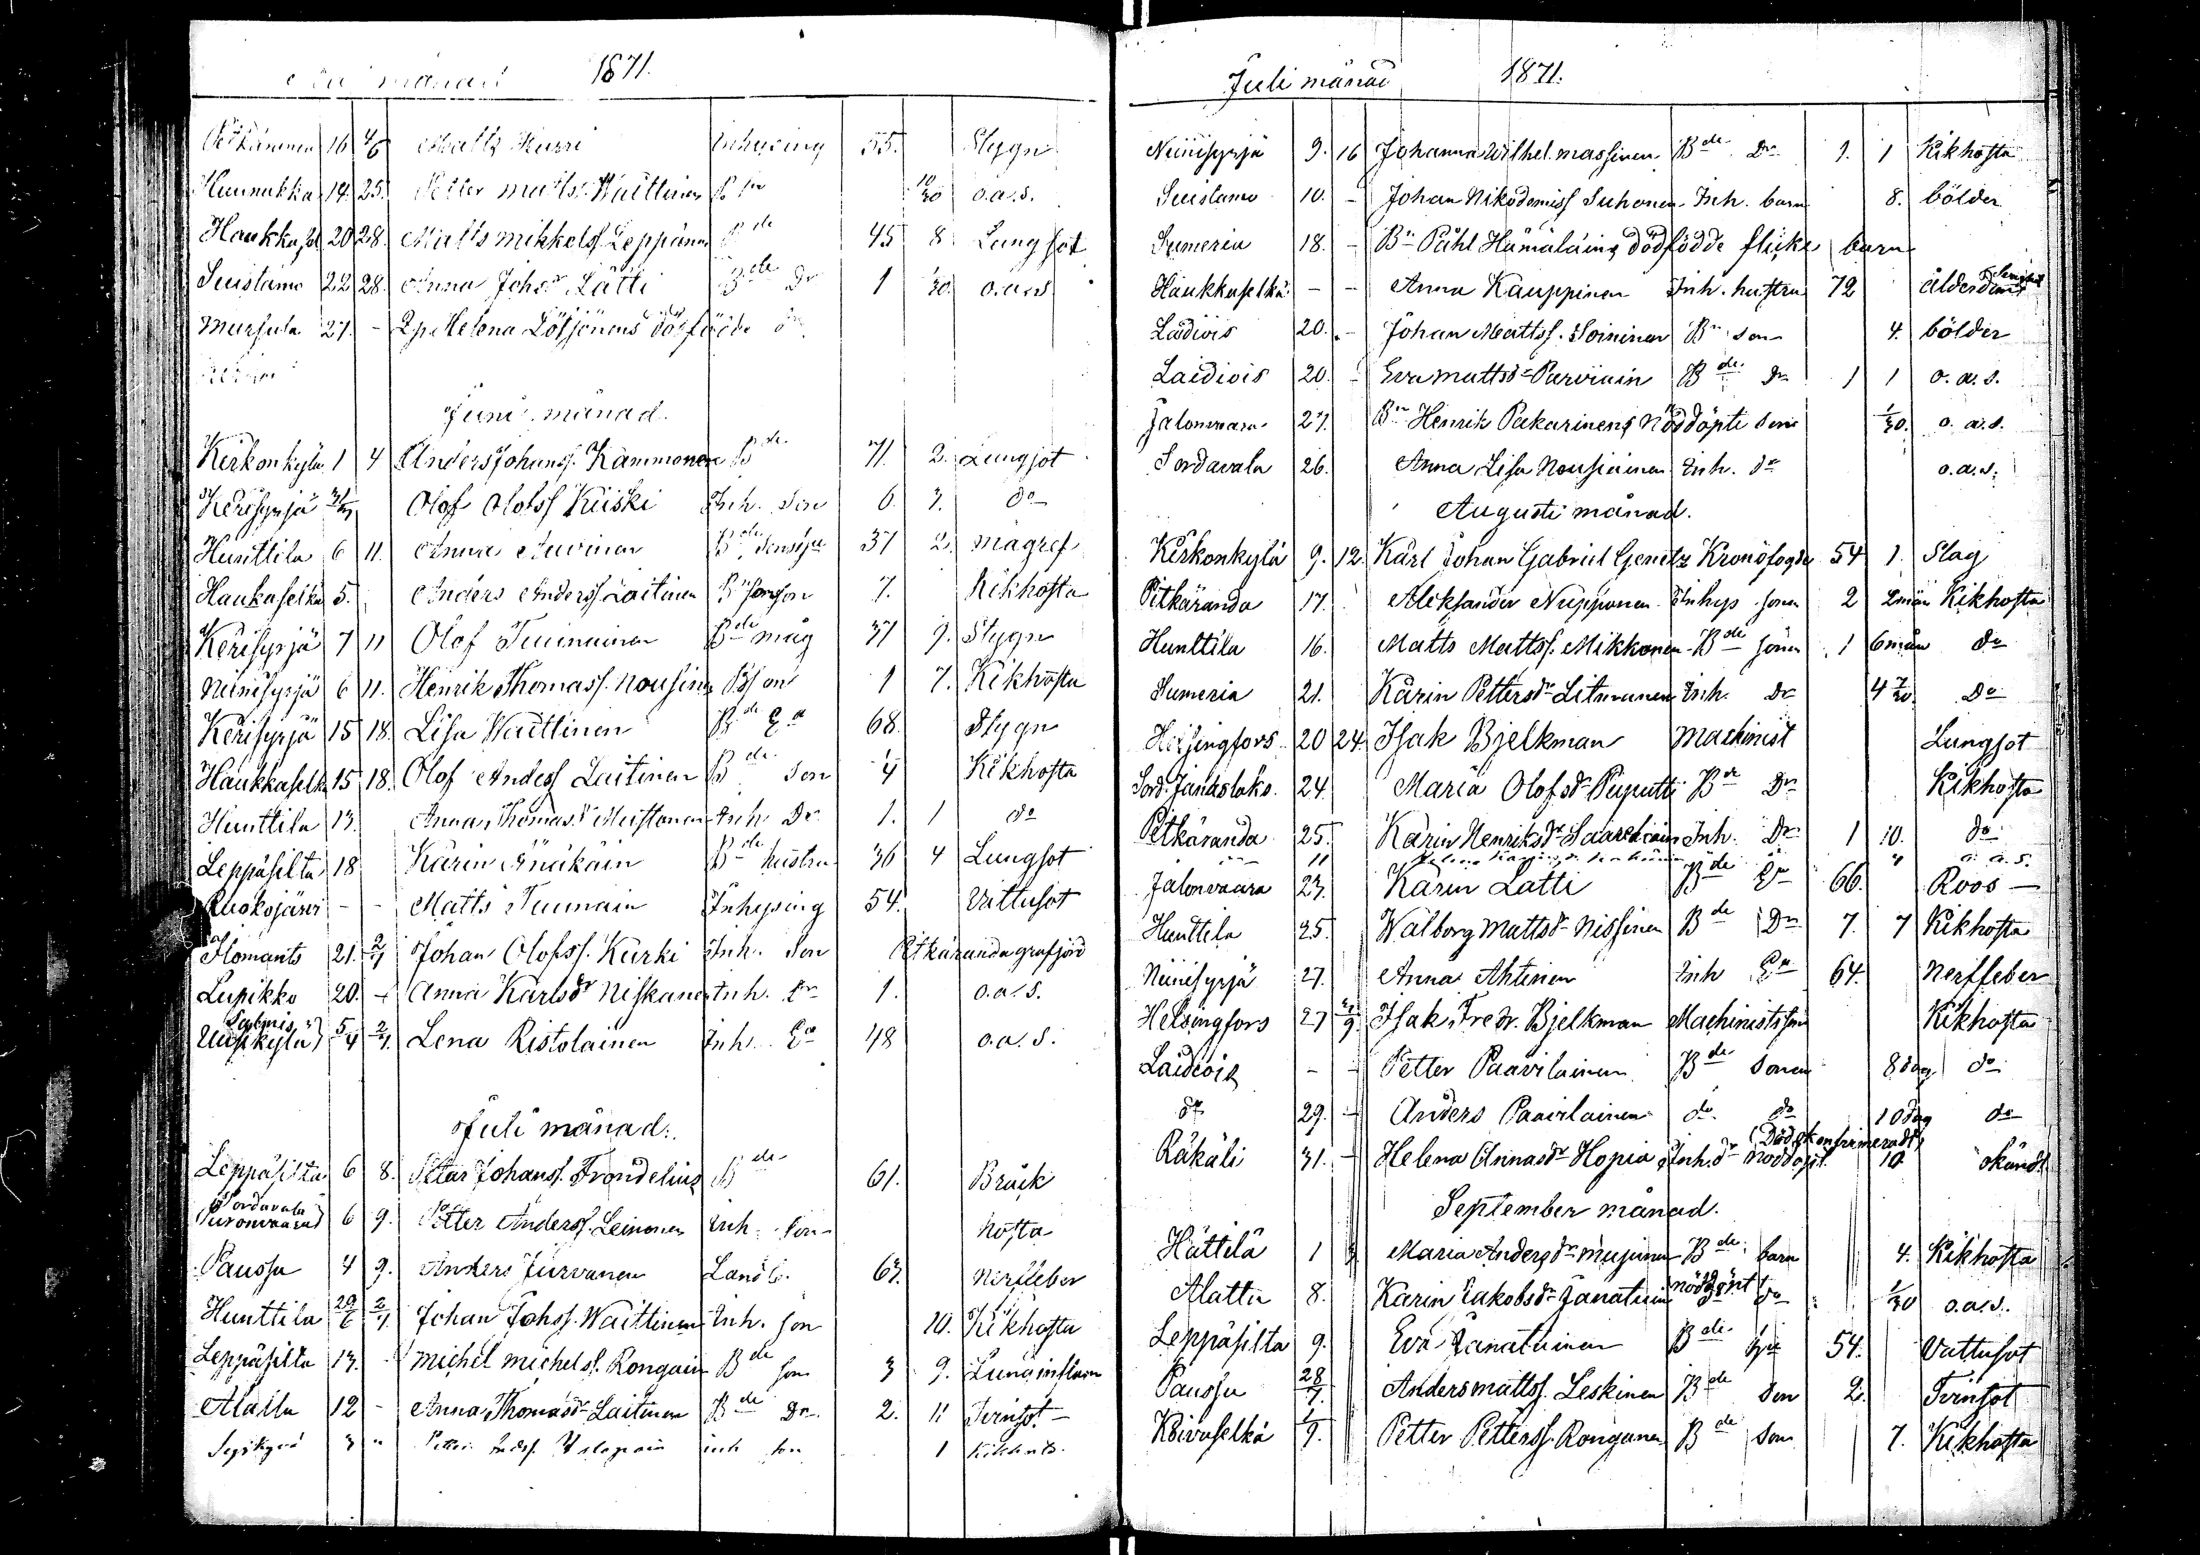 månad 1871.
16 4/6 Matts Kurri Inhysing 55. Stygn
Hunnukka 14. 25. Petter Matts. Waittinen 10/30 o.a.s.
Haukkasel 20 28. Matts Mikkelss. Leppänen Bde 45 8 Lungsot
Suistamo 22 28. Anna Johsdr Lätti Bde Dr 1 1/30. o.a.s
Mursula 27. - Qp. Helena Lötjönens dödfödde dr
Juni månad.
Kirkonkylä 1 4 Anders Johanss. Kämmonen Bde 71. 2. Lungsot
Kerisyrjä 31/5 Olof Olofss Kiiski Inh. Son 6. 3. do
Hunttila 6 11. Anna Auvinen Bde 37 2. magref
Haukaselkä 5. Anders Anderss. Laitinen Bn sonson 7. Kikhosta
Kerisyrjä 7 11 Olof Tuimainen Bde måg 37 9. Stygn
Niinisyrjä 6 11. Henrik Thomass. Nousine B son 1 7. Kikhosta
Kerisyrjä 15 18. Lisa Waittinen Bde Ea 68. Stygn
Haukkaselkä 15 18. Olof Anderss Laitinen Bde Son 4 Kikhosta
Hunttila 13. Anna Thomasdr Mustonen Inh. Dr 1. 1 do
Leppäsilta 18 Karin Änäkäin Bde hustru 36 4 Lungsot
Ruokojärvi - - Matts Tuimain Inhysing 54. Vattusot
Ilomants 21. 2/7 Johan Olofss. Kurki Inh. Son Pitkäranda grafjord
Lupikko 20. - Anna Karlsdr Niskanen Inh. Dr 1. o.a.s.
Salmis Uusikylä 5/4 2/7. Lena Ristolainen Inh. Ea 48 o.a.s.
Juli månad.
Leppäsilta 6 8. Petar Johanss. Frondelius Bde 61. Bråck
Sordavala 6 9. Petter Anderss. Leinonen Inh. Son hosta
Paussu 4 9. Anders Jurvanen Landb. 63. nerffeber
Hunttila 29/6 2/7 Johan Johss. Waittinen Inh. son 10. Kikhosta
Leppäsilta 13. - Michel Michelss. Rongain Bde son 3 9. Lunginflam
Alattu 12 - Anna Thomasdr Laitinen Bde Dr. 2. 11 Tvinsot
3 " inh son 1 Kikhosta.
Juli månad 1871.
Niinisyrjä 9. 16 Johanna Wilhel. Massinen Bde Dr 1. 1 Kikhosta
Suistamo 10. - Johan Nikodemiss Suhonen Inh. barn 8. bölder
Sumeria 18. - Bn Påhl Hämäläine dödfödde flicke barn
Haukkaselkä - - Anna Kauppinen Inh. hustru 72 ålderdoms
Laidiois 20. - Johan Mattss. Soininen Bn son 4. bölder
Laidiois 20. - Eva Mattsdr Parviain Bde Dr 1 1 o.a.s.
Jalonvaara 27. Bn Henrik Pakarinens Nöddöpte son 1/30. o.a.s.
Sordavala 26. Anna Lisa Nousiainen Inh. dr o.a.s.
Augusti månad.
Kirkonkylä 9. 12. Karl Johan Gabriel Genetz Kronofogde 54 1. Slag
Pitkäranda 17. Aleksander Nupponen Inhys. sonen 2 2 mån Kikhosta
Hunttila 16. Matts Mattss. Mikkonen Bde sonen 1 6 mån do
Sumeria 21. Karin Pettersdr Litmanen Inh. Dr 4 7/30. Do
Helsingfors 20 24. Isak Bjelkman Machinist Lungsot
Sord. Jänaslaks. 24. Maria Olofsdr Puputti Bde Dr Kikhosta
Pitkäranda 25. Karin Henriksdr Saarelain Inh. Dr 1 10. do
o.a.s.
Jalonvaara 23. Karin Lätti Bde Ea 66. Roos
Hunttila 25. Walborg Mattsdr Nissinen Bde Dr 7. 7 Kikhosta
Niinisyrjä 27. Anna Ahtinen Inh Ea 64. nerffeber
Helsingfors 27 Isak Fredr. Bjelkman Machinists son Kikhosta
Laidiois - - Petter Paavilainen Bde Sonen 8 dag. do
do 29. - Anders Paavilainen do do 10 dag do
Räkäli 31. - Helena Annasdr Hopia Inh. dr nöddöpt. 10 okänd
September månad.
Hättilä 1 3 Maria Andersdr Mujunen Bde barn 4. Kikhosta
Alattu 8. Karin Jakobsdr Janatuin nöddöpt do 1/30 o.a.s.
Leppäsilta 9. Eva Janatuinen Bde 54. Vattusot
Paussu 28/7. Anders Mattss. Leskinen Bde Son 2. Tvinsot
Koivuselkä 1/9. Petter Petterss. Ronganen Bde Son 7. Kikhosta